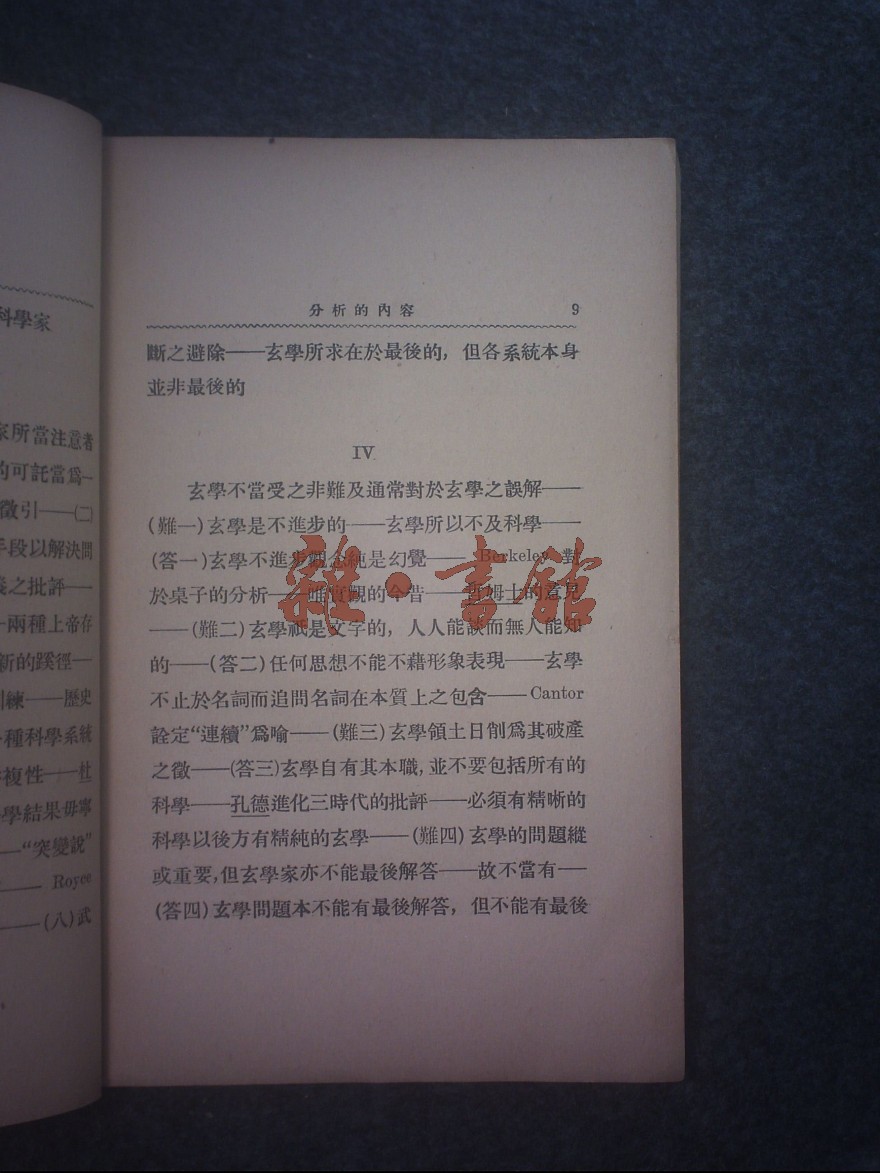 科學家
家所當注意者
的可託當爲一
徵引——(二)
手段以解決問
義之批評——
兩種上帝存
新的蹊徑—
訓練——歷史
種科學系統
複性——杜
學結果毋寧
——“突變說”
—— Royce
——(八)武
分析的內容 9
斷之避除——玄學所求在於最後的，但各系統本身
並非最後的
IV
玄學不當受之非難及通常對於玄學之誤解——
(難一)玄學是不進步的——玄學所以不及科學——
(答一)玄學不進步觀念純是幻覺—— Berkeley 對
於桌子的分析——唯實觀的今昔——詹姆士的意見
——(難二)玄學祇是文字的，人人能談而無人能知
的——(答二)任何思想不能不藉形象表現——玄學
不止於名詞而追問名詞在本質上之包含—— Cantor
詮定“連續”爲喻——(難三)玄學領土日削爲其破產
之徵——(答三)玄學自有其本職，並不要包括所有的
科學——孔德進化三時代的批評——必須有精晰的
科學以後方有精純的玄學——(難四)玄學的問題縱
或重要，但玄學家亦不能最後解答——故不當有——
(答四)玄學問題本不能有最後解答，但不能有最後
雜·書館